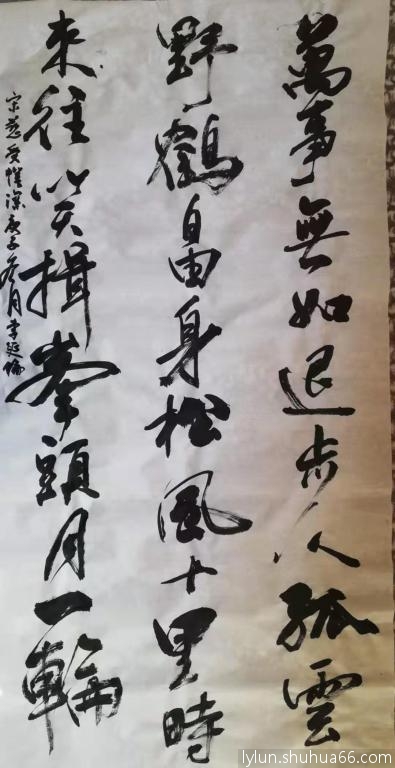 萬事無如退步人孤雲
野鶴自由身松風十里時
来往笑揖峯頭月一輪
宋慈受深庚子月李延倫
lylun.shuhua66.com